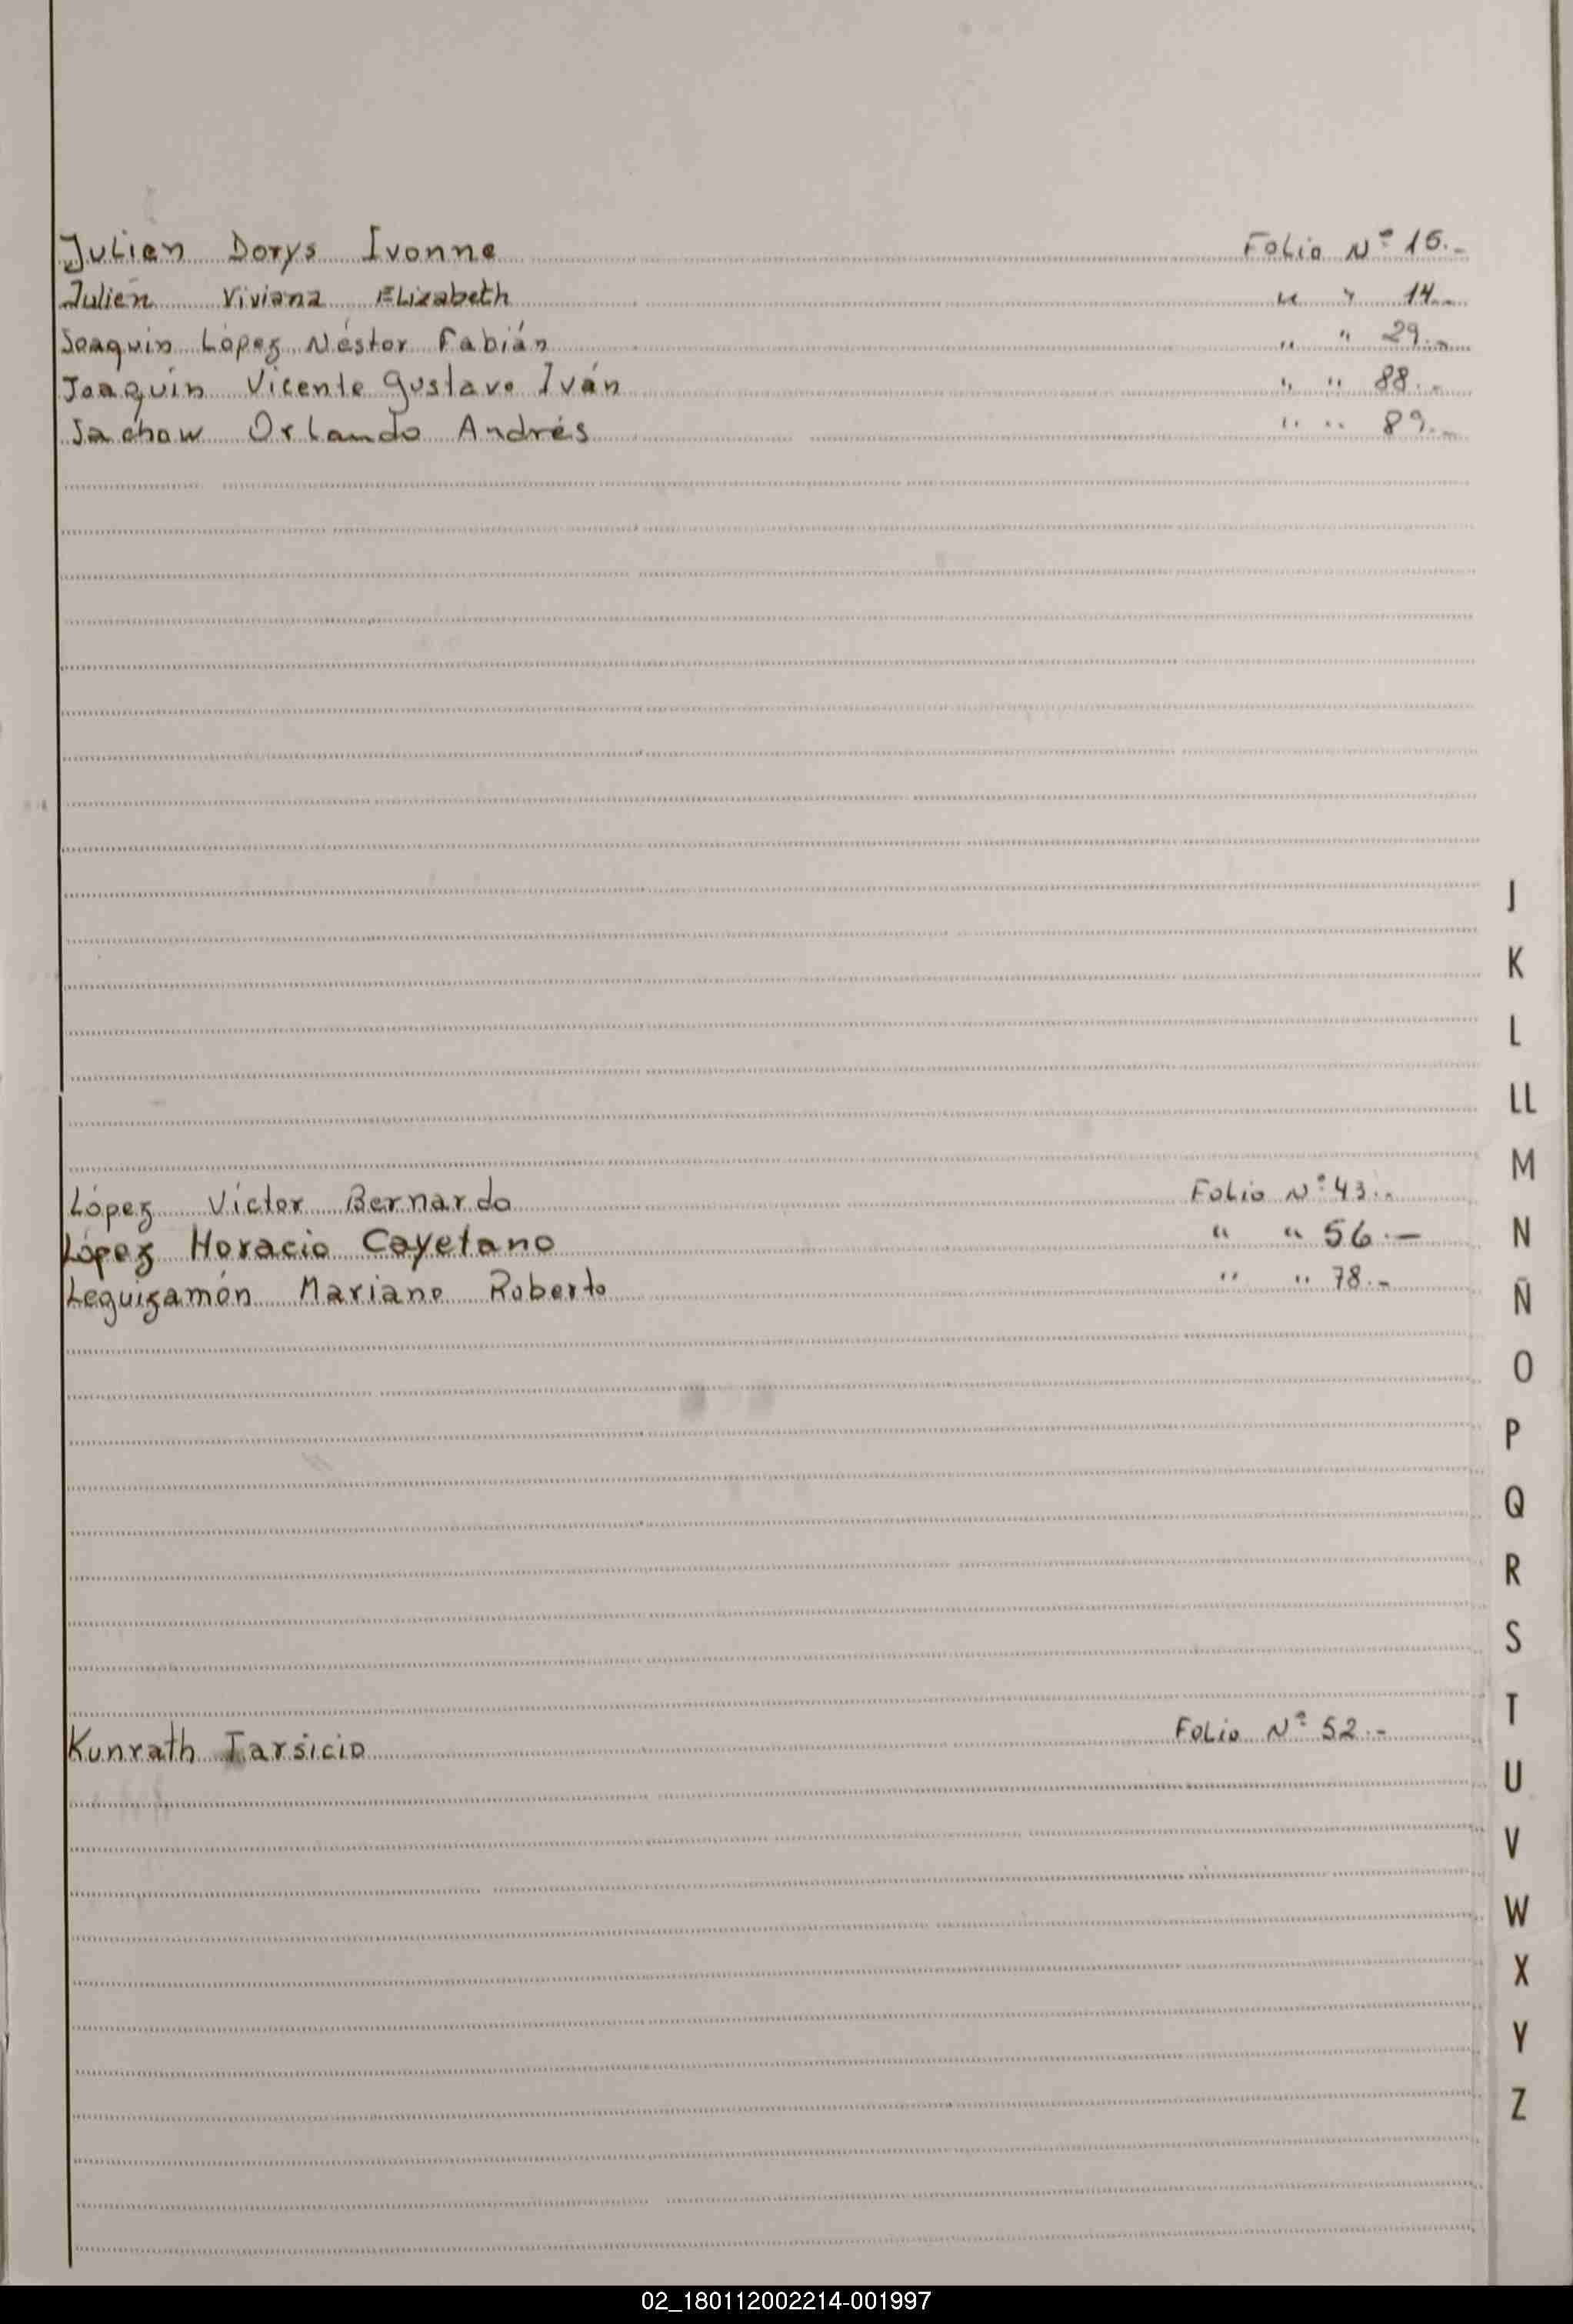 Julien Dorys Ivonne Folio Nº 15.-
Julien Viviana Elizabeth " " 14.-
Joaquin López Néstor Fabián " " 29.-
Joaquín Vicente Gustavo Iván " " 88.-
Jachow Orlando Andrés " " 89.-
J
K
L
LL
M
López Víctor Bernardo Folio Nº 43.-
López Horacio Cayetano " " 56.-
N
Leguizamón Mariano Roberto " " 78.-
Ñ
O
P
Q
R
S
T
Kunrath Tarsicio Folio Nº 52.-
U
V
W
X
Y
Z
02_180112002214-001997